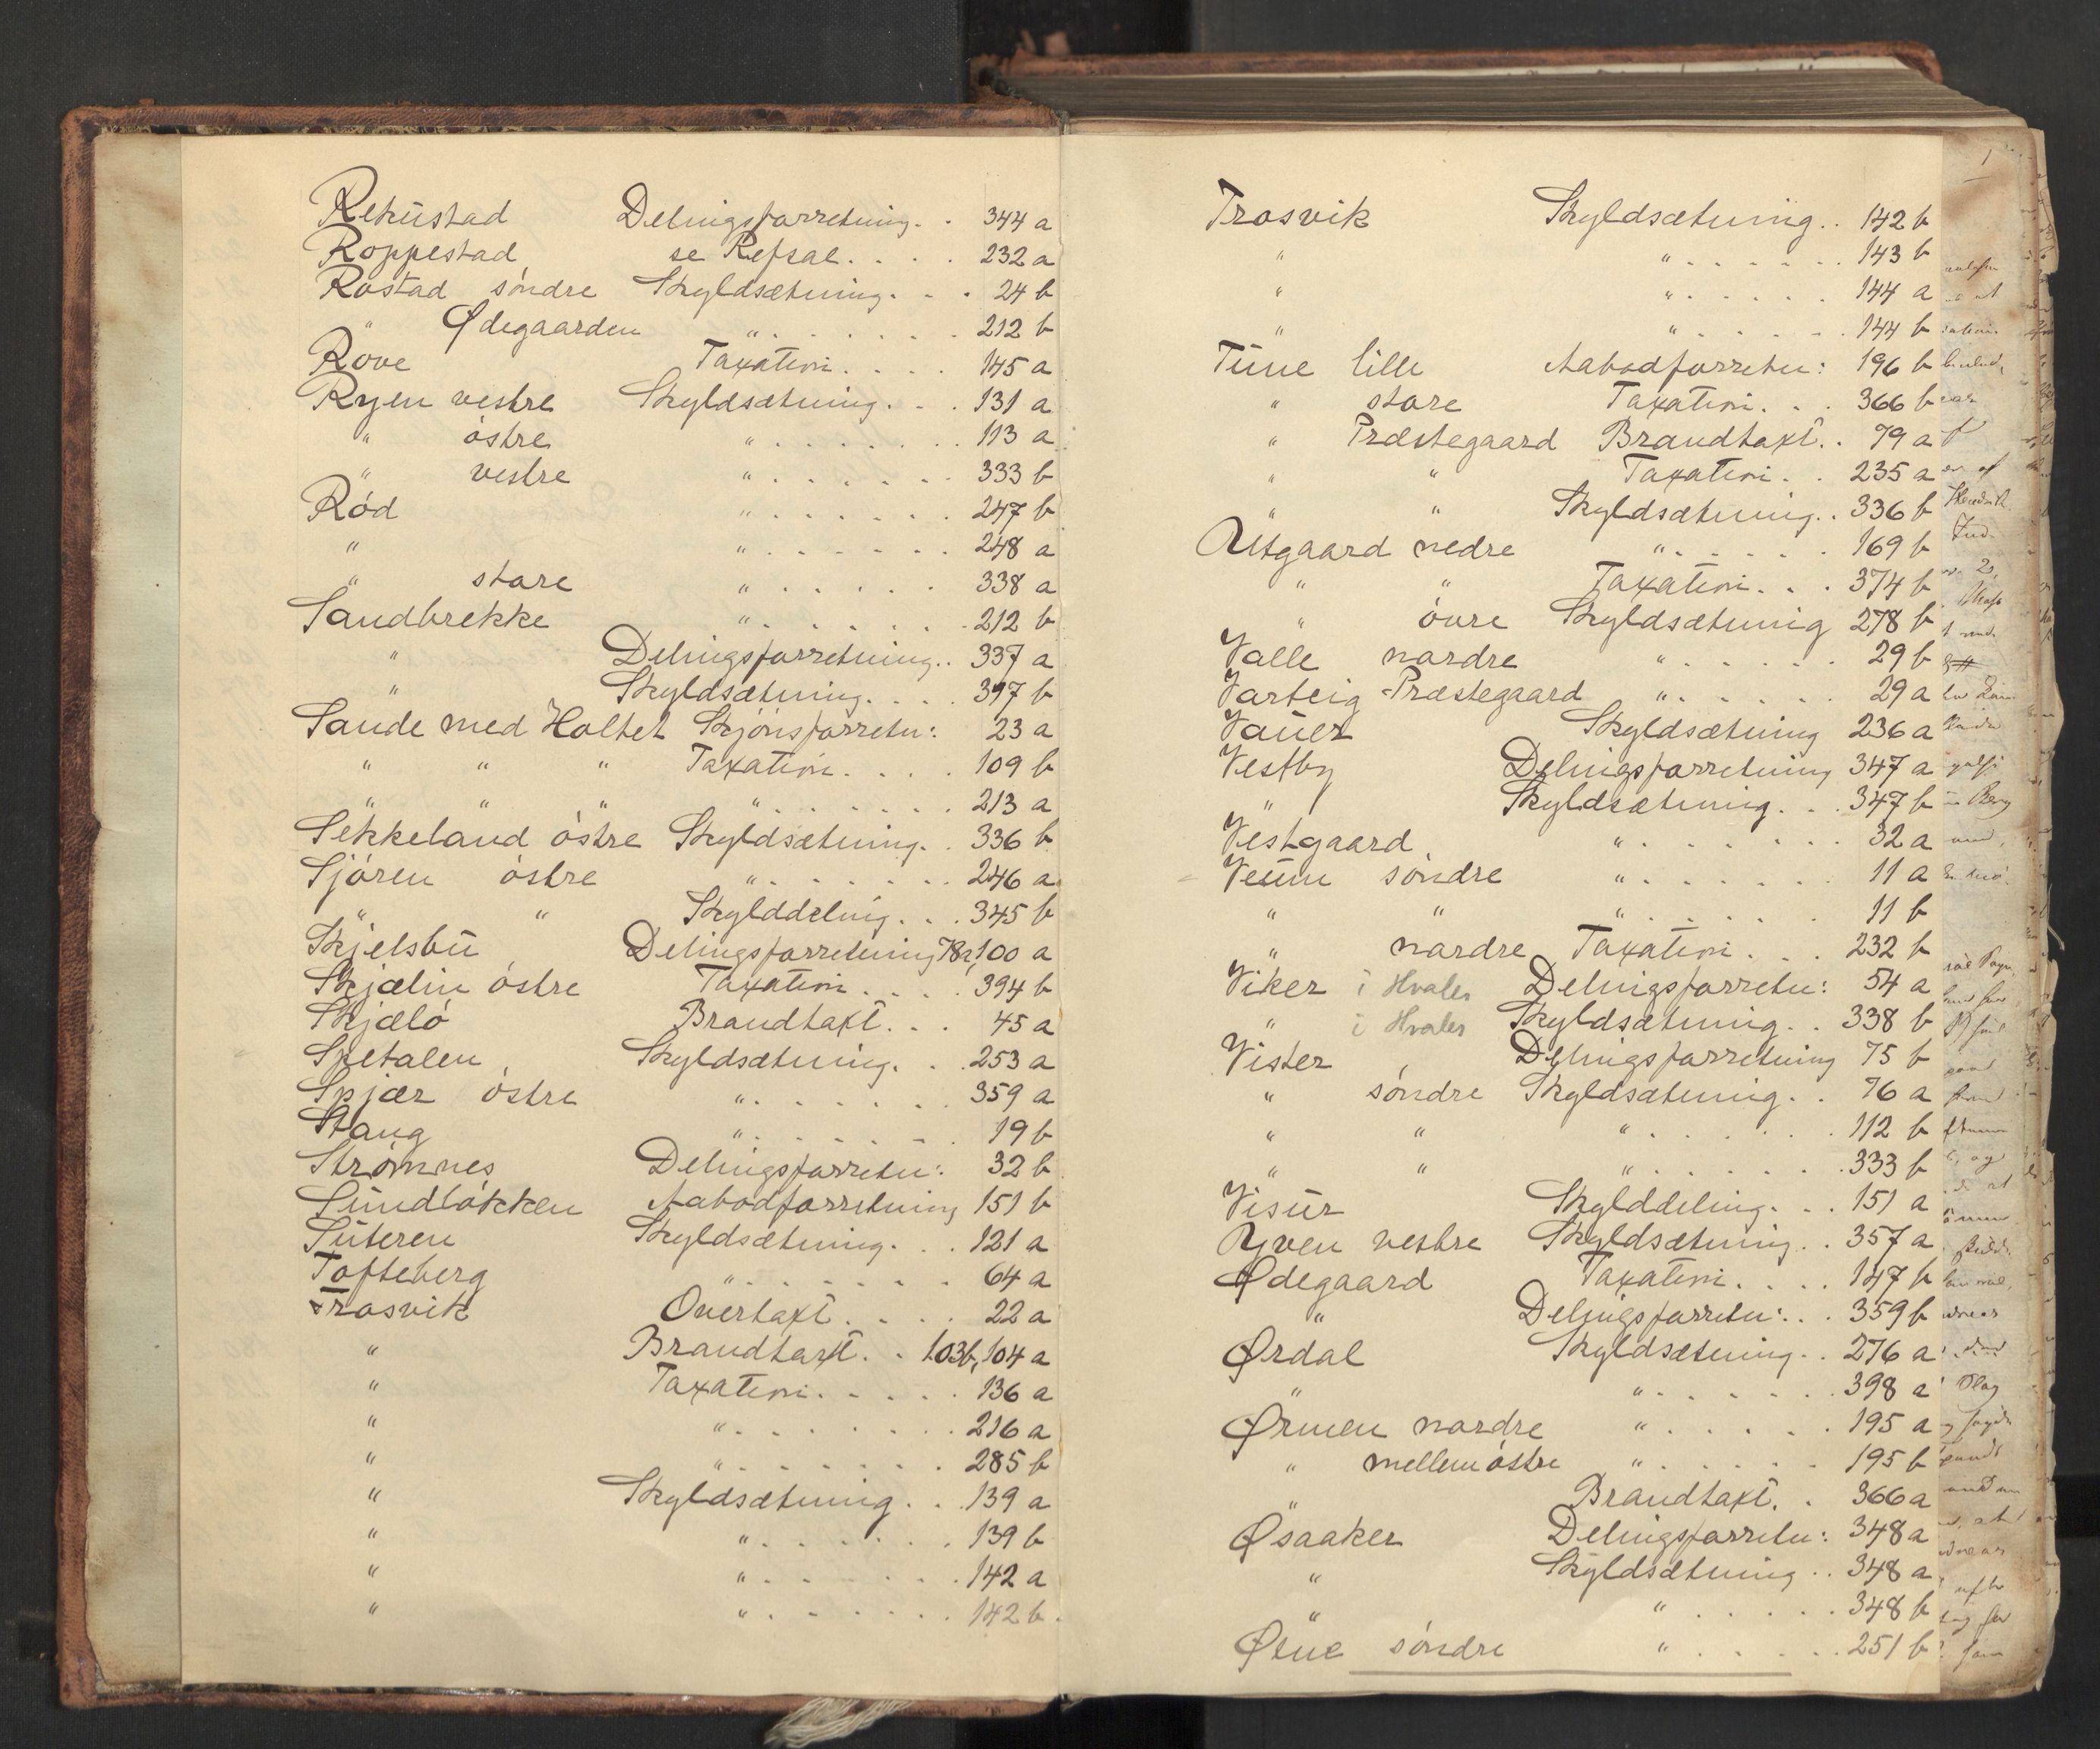 Rekustad Delingsforretning. . 344 a
Roppestad se Refsal. . . . 232 a
Rostad söndre Skyldsætning. . . 24 b
" Ødegaarden " . . . . . . 212 b
Rove Taxation. . . . 145 a
Ryen vestre Skyldsætning. . . 131 a
" östre " . . . . . . 113 a
" vestre " . . . . . . 333 b
Röd " . . . . . . 247 b
" " . . . . . . 248 a
" store " . . . . . . 338 a
Sandbrekke " . . . . . . 212 b
" Delingsforretning. . 337 a
" Skyldsætning. . . . 397 b
Sande med Holtet Skjönsforretn: 23 a
" " " Taxation. . . . 109 b
" " " " . . . . . . 213 a
Sekkeland östre Skyldsætning. . 336 b
Sjören östre " . . . . . . 246 a
" " Skylddeling. . . 345 b
Skjelsbu Delingsforretning 78a, 100 a
Skjælin östre Taxation. . . . 394 b
Skjælö Brandtaxt. . . 45 a
Spetalen Skyldsætning. . . 253 a
Spjær östre " . . . . . . 359 a
Stang " . . . . . . 19 b
Strömnes Delingsforretn: 32 b
Sundlökken Aabodforretning 151 b
Suteren Skyldsætning. . . 121 a
Tofteberg " . . . . . . 64 a
Trosvik Overtaxt. . . . 22 a
" Brandtaxt. . 103b, 104 a
" Taxation. . . . . 136 a
" " . . . . . . 216 a
" " . . . . . . 285 b
" Skyldsætning. . . 139 a
" " . . . . . . 139 b
" " . . . . . . 142 a
" " . . . . . . 142 b.
Trosvik Skyldsætning. . 142 b
" " . . . . . . 143 b
" " . . . . . . 144 a
" " . . . . . . 144 b
Tune lille Aabodforretn: 196 b
" store Taxation. . . 366 b
" Præstegaard Brandtaxt. . 79 a
" " Taxation. . 235 a
" " Skyldsætning. . 336 b
Utgaard nedre " . . . . . . 169 b
" " Taxation. . . 374 b
" övre Skyldsætning 278 b
Valle nordre " . . . . . . 29 b
Varteig Præstegaard " . . . . . . 29 a
Vauer Skyldsætning 236 a
Vestby Delingsforretning 347 a
" Skyldsætning. . . 347 b
Vestgaard " . . . . . . 32 a
Veum söndre " . . . . . . 11 a
" " " . . . . . . 11 b
" nordre Taxation. . . 232 b
Viker i Hvaler Delingsforretn: 54 a
" i Hvaler Skyldsætning. . 338 b
Vister Delingsforretning 75 b
" söndre Skyldsætning. . 76 a
" " " . . . . . . 112 b
" " " . . . . . . 333 b
Visur Skylddeling. . . 151 a
Yven vestre Skyldsætning. . 357 a
Ødegaard Taxation. . . . 147 b
" Delingsforretn: . . 359 b
Ørdal Skyldsætning. . 276 a
" " . . . . . . 398 a
Ørmen nordre " . . . . . . 195 a
" mellem östre " . . . . . . 195 b
" Brandtaxt. . 366 a
Øsaaker Delingsforretn: 348 a
" Skyldsætning . . 348 a
" " . . . . . . 348 b
Øtne söndre " . . . . . . 251 b